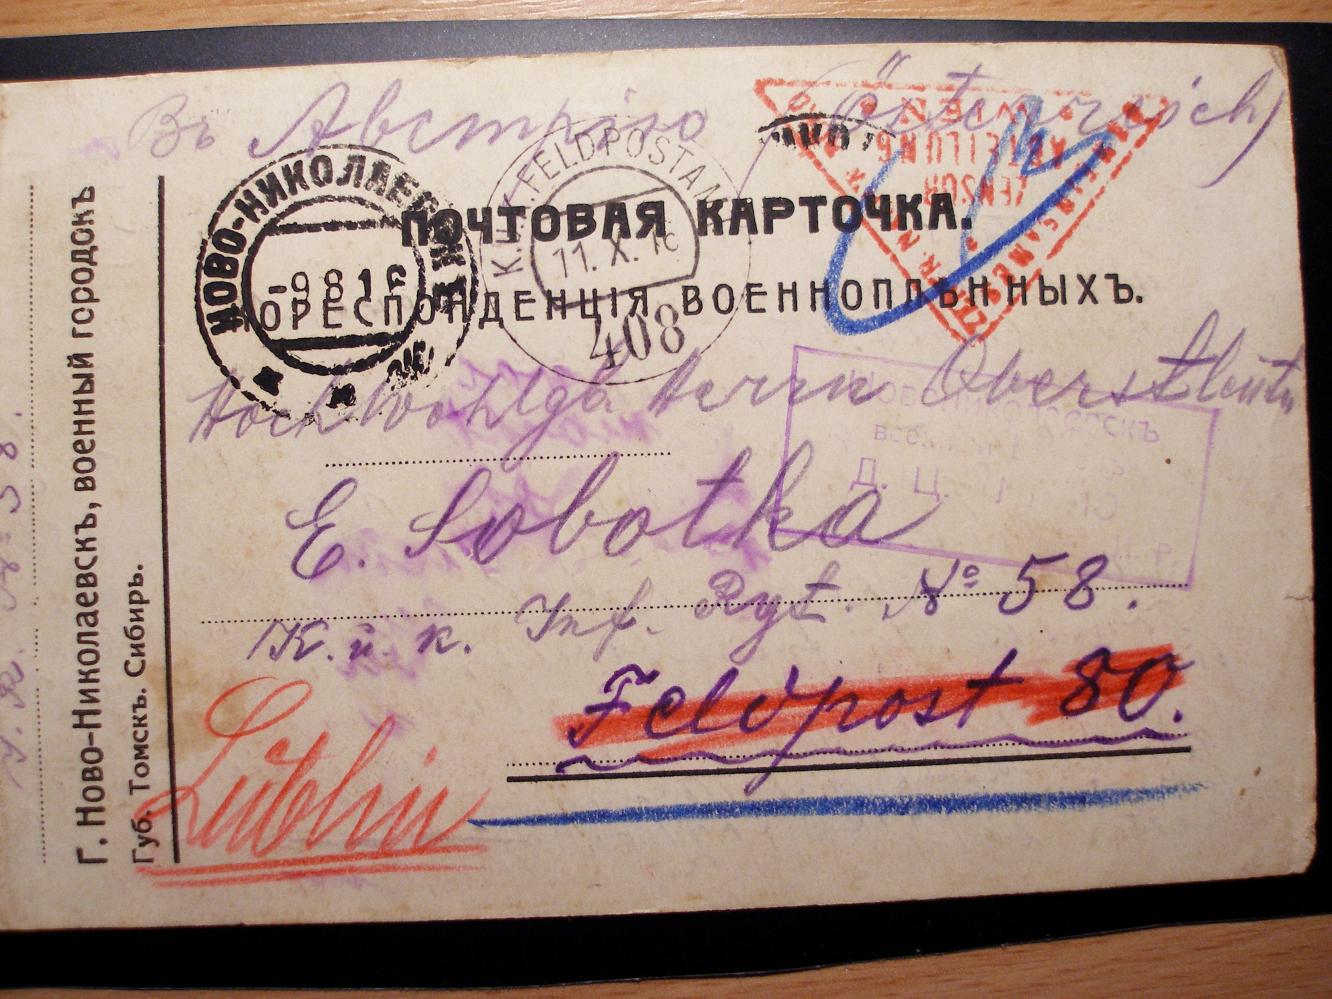 Въ Австрію (Österreich)
ПОЧТОВАЯ КАРТОЧКА.
КОРЕСПОНДЕНЦІЯ ВОЕННОПЛѢННЫХЪ.
НОВО-НИКОЛАЕВСК
-9 8 16
K.u.K. FELDPOSTAMT
11. X. 16
408
ZENSUR
ABTEILUNG
WIEN
Hochwohlgb Herrn Oberstleutn
E. Sobotka
K. u. k. Inf. Rgt. № 58.
Feldpost 80.
Lublin
НОВОНИКОЛАЕВСКЪ
Д. Ц.
Г. Ново-Николаевскъ, военный городокъ
Губ. Томскъ. Сибирь.